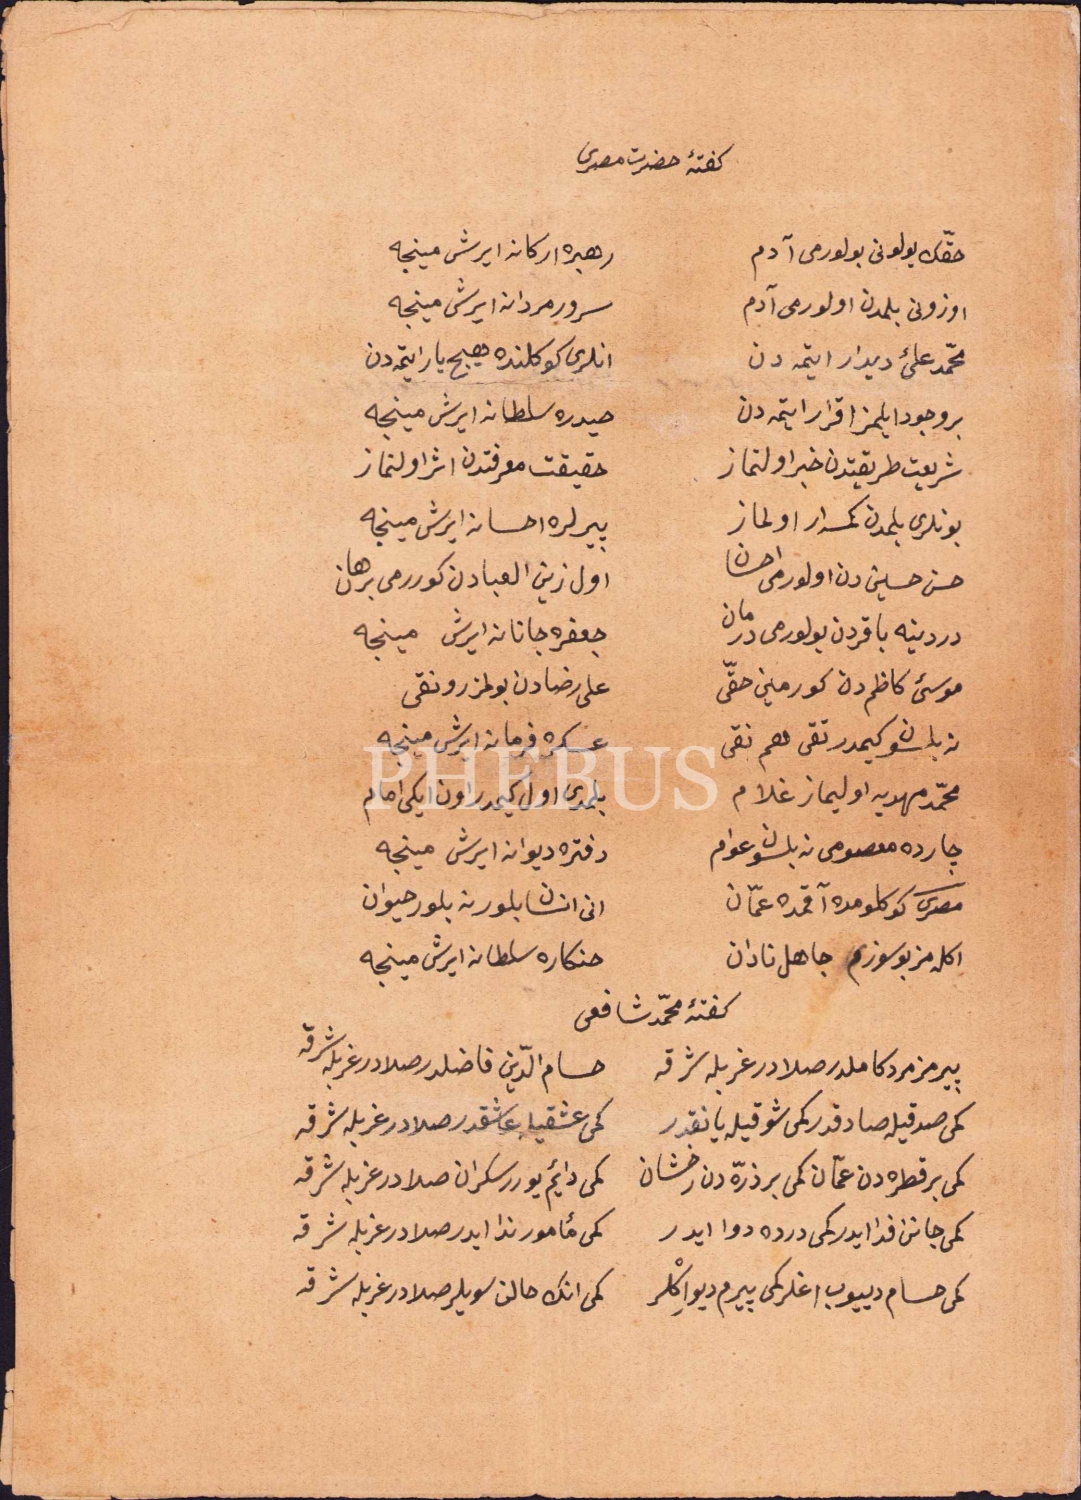 كفتۀ حضرت مصری
حقّك يولونی بولورمی آدم رهبره اركانه ايرشمينجه
اوزونی بلمدن اولورمی آدم سرور مردانه ايرشمينجه
محمّد علیٔ ديدار ايتمه دن انلری كوكلنده هيچ يار ايتمه دن
بر وجود ايلمز اقرار ايتمه دن حيدره سلطانه ايرشمينجه
شريعت طريقتدن خبر اولنماز حقيقت معرفتدن اثر اولنماز
بونلری بلمدن كمسه ار اولماز پيرلره احسانه ايرشمينجه
حسن حسين دن اولورمی احسان اول زين العبادن كوررمی برهان
دردينه باقردن بولورمی درمان جعفره جانانه ايرشمينجه
موسیٔ كاظم دن كورمين حقّی علی رضادن بولمز رونقی
نه بلسون كيمدر تقی هم نقی عسكره فرمانه ايرشمينجه
PHEBUS
محمّد مهديه اوليماز غلام بلمدی اول كيمدر اون ايكی امام
چارده معصومی نه بلسون عوام دفتره ديوانه ايرشمينجه
مصری كوكلومده آقمده عمّان انی انسان بلور نه بلور حيوان
اكلمز بو سوزم جاهل نادان حنكاره سلطانه ايرشمينجه
كفتۀ محمّد شافعی
پيرمز مرد كاملدر صلادر غربله شرقه حسام الدّين فاضلدر صلادر غربله شرقه
كمی صدقيله صادقدر كمی شوقيله يانقدر كمی عشقيله عاشقدر صلادر غربله شرقه
كمی بر قطره دن عمّان كمی بر ذرّه دن رخشان كمی دائم يورر سكران صلادر غربله شرقه
كمی جانن فدا ايدر كمی درده دوا ايدر كمی مأمور ندا ايدر صلادر غربله شرقه
كمی حسام دييوب اغلر كمی پيرم ديو اكلر كمی انك حالن سويلر صلادر غربله شرقه